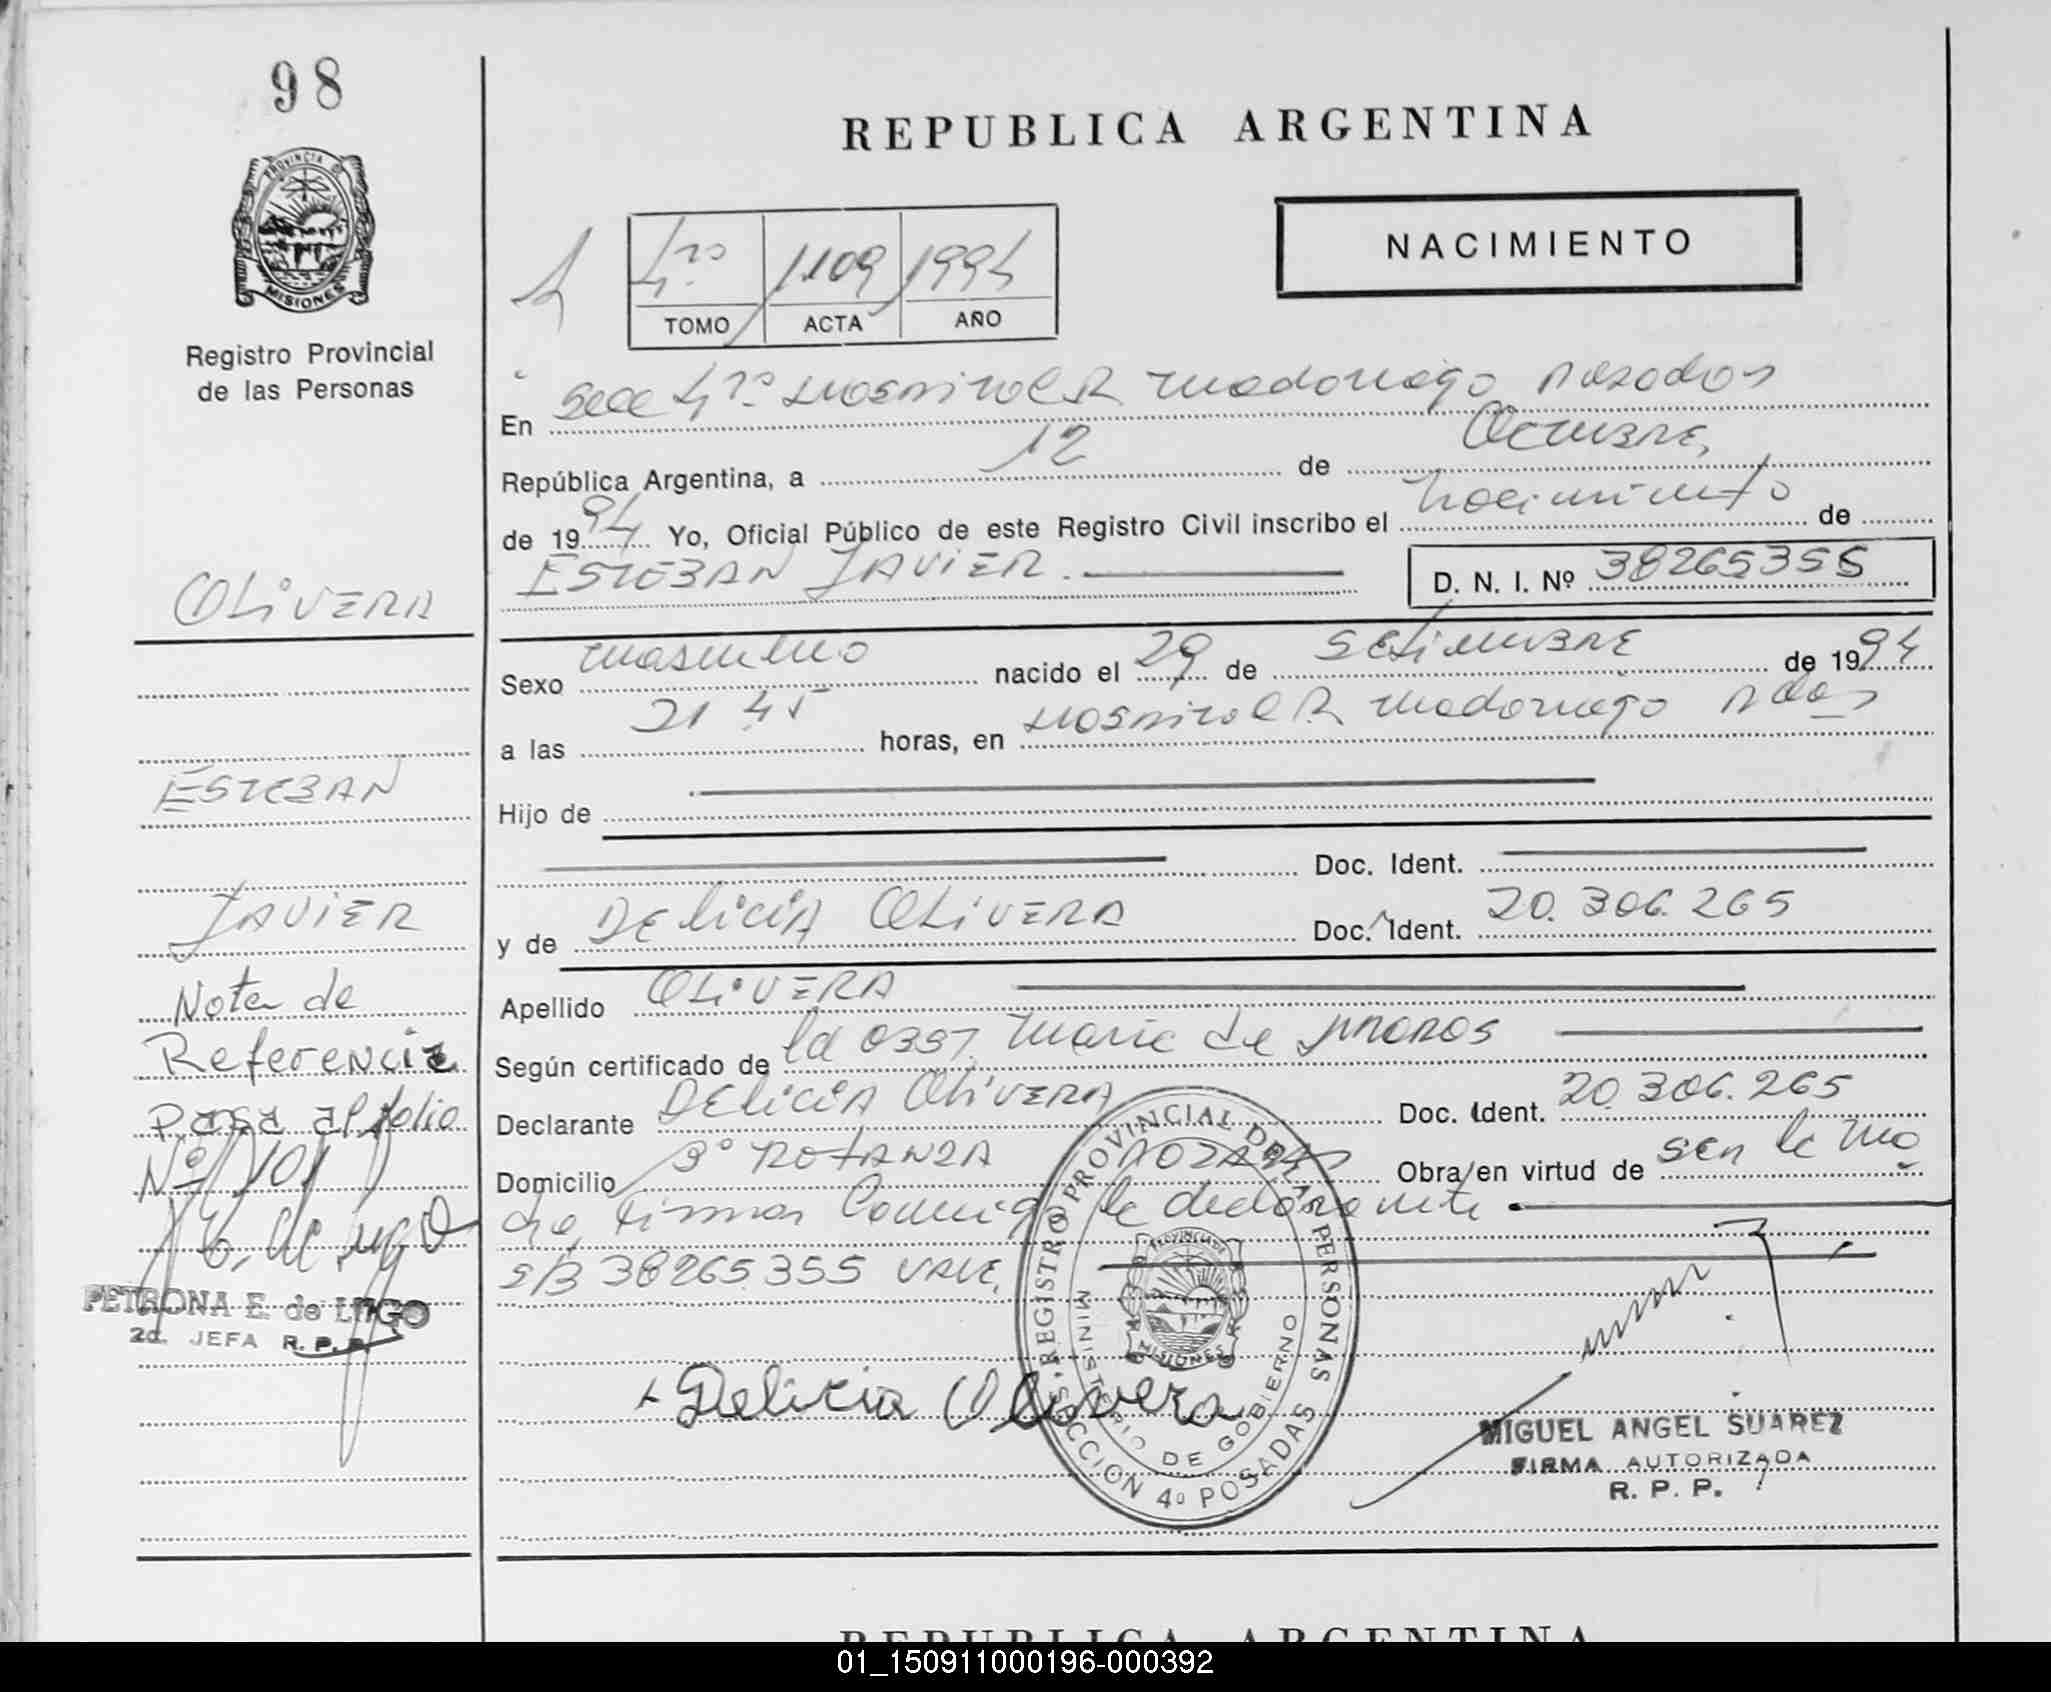 98
REPUBLICA ARGENTINA
PROVINCIA DE
MISIONES
Registro Provincial
de las Personas
4
4ro 1109 1994
TOMO ACTA AÑO
NACIMIENTO
En Secc 4ta Hospital R Madariaga Posadas
República Argentina, a 12 de Octubre,
de 1994 Yo, Oficial Público de este Registro Civil inscribo el nacimiento de
ESTEBAN JAVIER.
D. N. I. Nº 38265355
OLIVERA
Sexo masculino nacido el 29 de SETIEMBRE de 1994
a las 21 45 horas, en Hospital R Madariaga Pdas
ESTEBAN
Hijo de
Doc. Ident.
JAVIER
y de DELICIA OLIVERA Doc. Ident. 20.306.265
Apellido OLIVERA
Nota de
Referencia
Pasa al folio
Nº 101
Según certificado de la Obst Maria de
Declarante DELICIA OLIVERA Doc. Ident. 20.306.265
Domicilio Posadas Obra en virtud de ser la ma
dre, firma Conmigo la declarante
s/b 38265355 VALE.
E. de Lugo
PETRONA E. de LUGO
2a. JEFA R. P. P.
Delicia Olivera
REGISTRO PROVINCIAL DE LAS PERSONAS
SECCION 4º POSADAS
MINISTERIO DE GOBIERNO
PROVINCIA DE
MISIONES
MIGUEL ANGEL SUAREZ
FIRMA AUTORIZADA
R. P. P.
REPUBLICA ARGENTINA
01_150911000196-000392